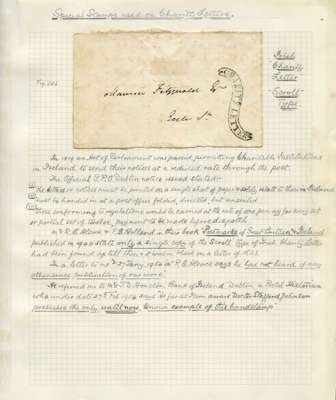 Special Stamps used on Charity Letters.
Irish
Charity
Letter
Scroll
type
Maurice Fitzgerald Esq
Eccles St
CHARITY LETTER
In 1819 an Act of Parliament was passed permitting Charitable Institutions
in Ireland to send their notices at a reduced rate through the post.
The Official G.P.O. Dublin notice issued stated:-
The letters or notices must be printed on a single sheet of paper & solely relate to in Ireland
must be handed in at a post office folded, directed, but unsealed
Those conforming to regulations would be carried at the rate of one penny for every set
or printed set of twelve, payment to be made before dispatch
R.C. & F.B. Holland in their book Postmarks of Great Britain & Ireland
published in 1940 state only a single copy of the Scroll type of Irish Charity Letter
had been found up till then & it was on a letter of 1822.
In a letter to me 27 Jany. 1950 R.C. says he had not heard of any
other since publication of our work.
He referred me to Mr F.E. Dixon, Bank of Ireland Dublin, a Postal Historian
who under date 27th Feb. 1954 says "As far as I am aware Doctor Stafford Johnson
possesses the only until now, known example of this handstamp"